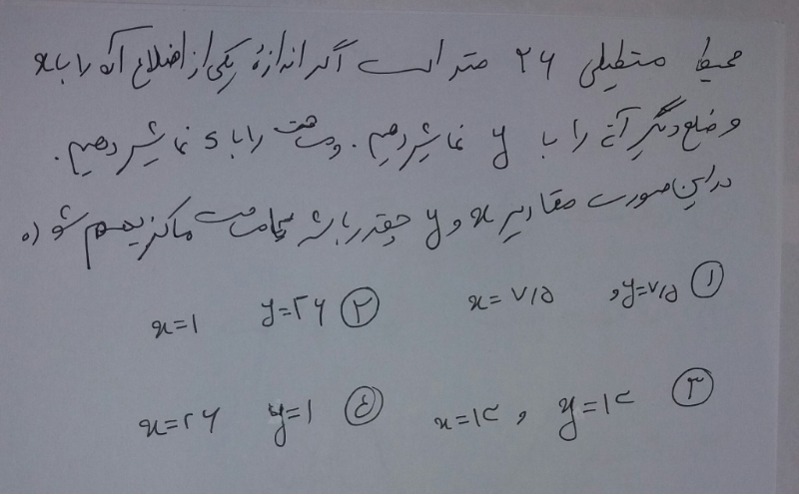 محیط مستطیلی ۲۶ متر است اگر اندازهٔ یکی از اضلاع آن را با x
و ضلع دیگر آن را با y نمایش دهیم. و مساحت را با s نمایش دهیم.
در این صورت مقادیر x و y چقدر باشد تا مساحت ماکزیمم شود
۱ y=۷/۵ , x=۷/۵
۲ y=۲۶ x=۱
۳ y=۱۳ , x=۱۳
۴ y=۱ x=۲۶